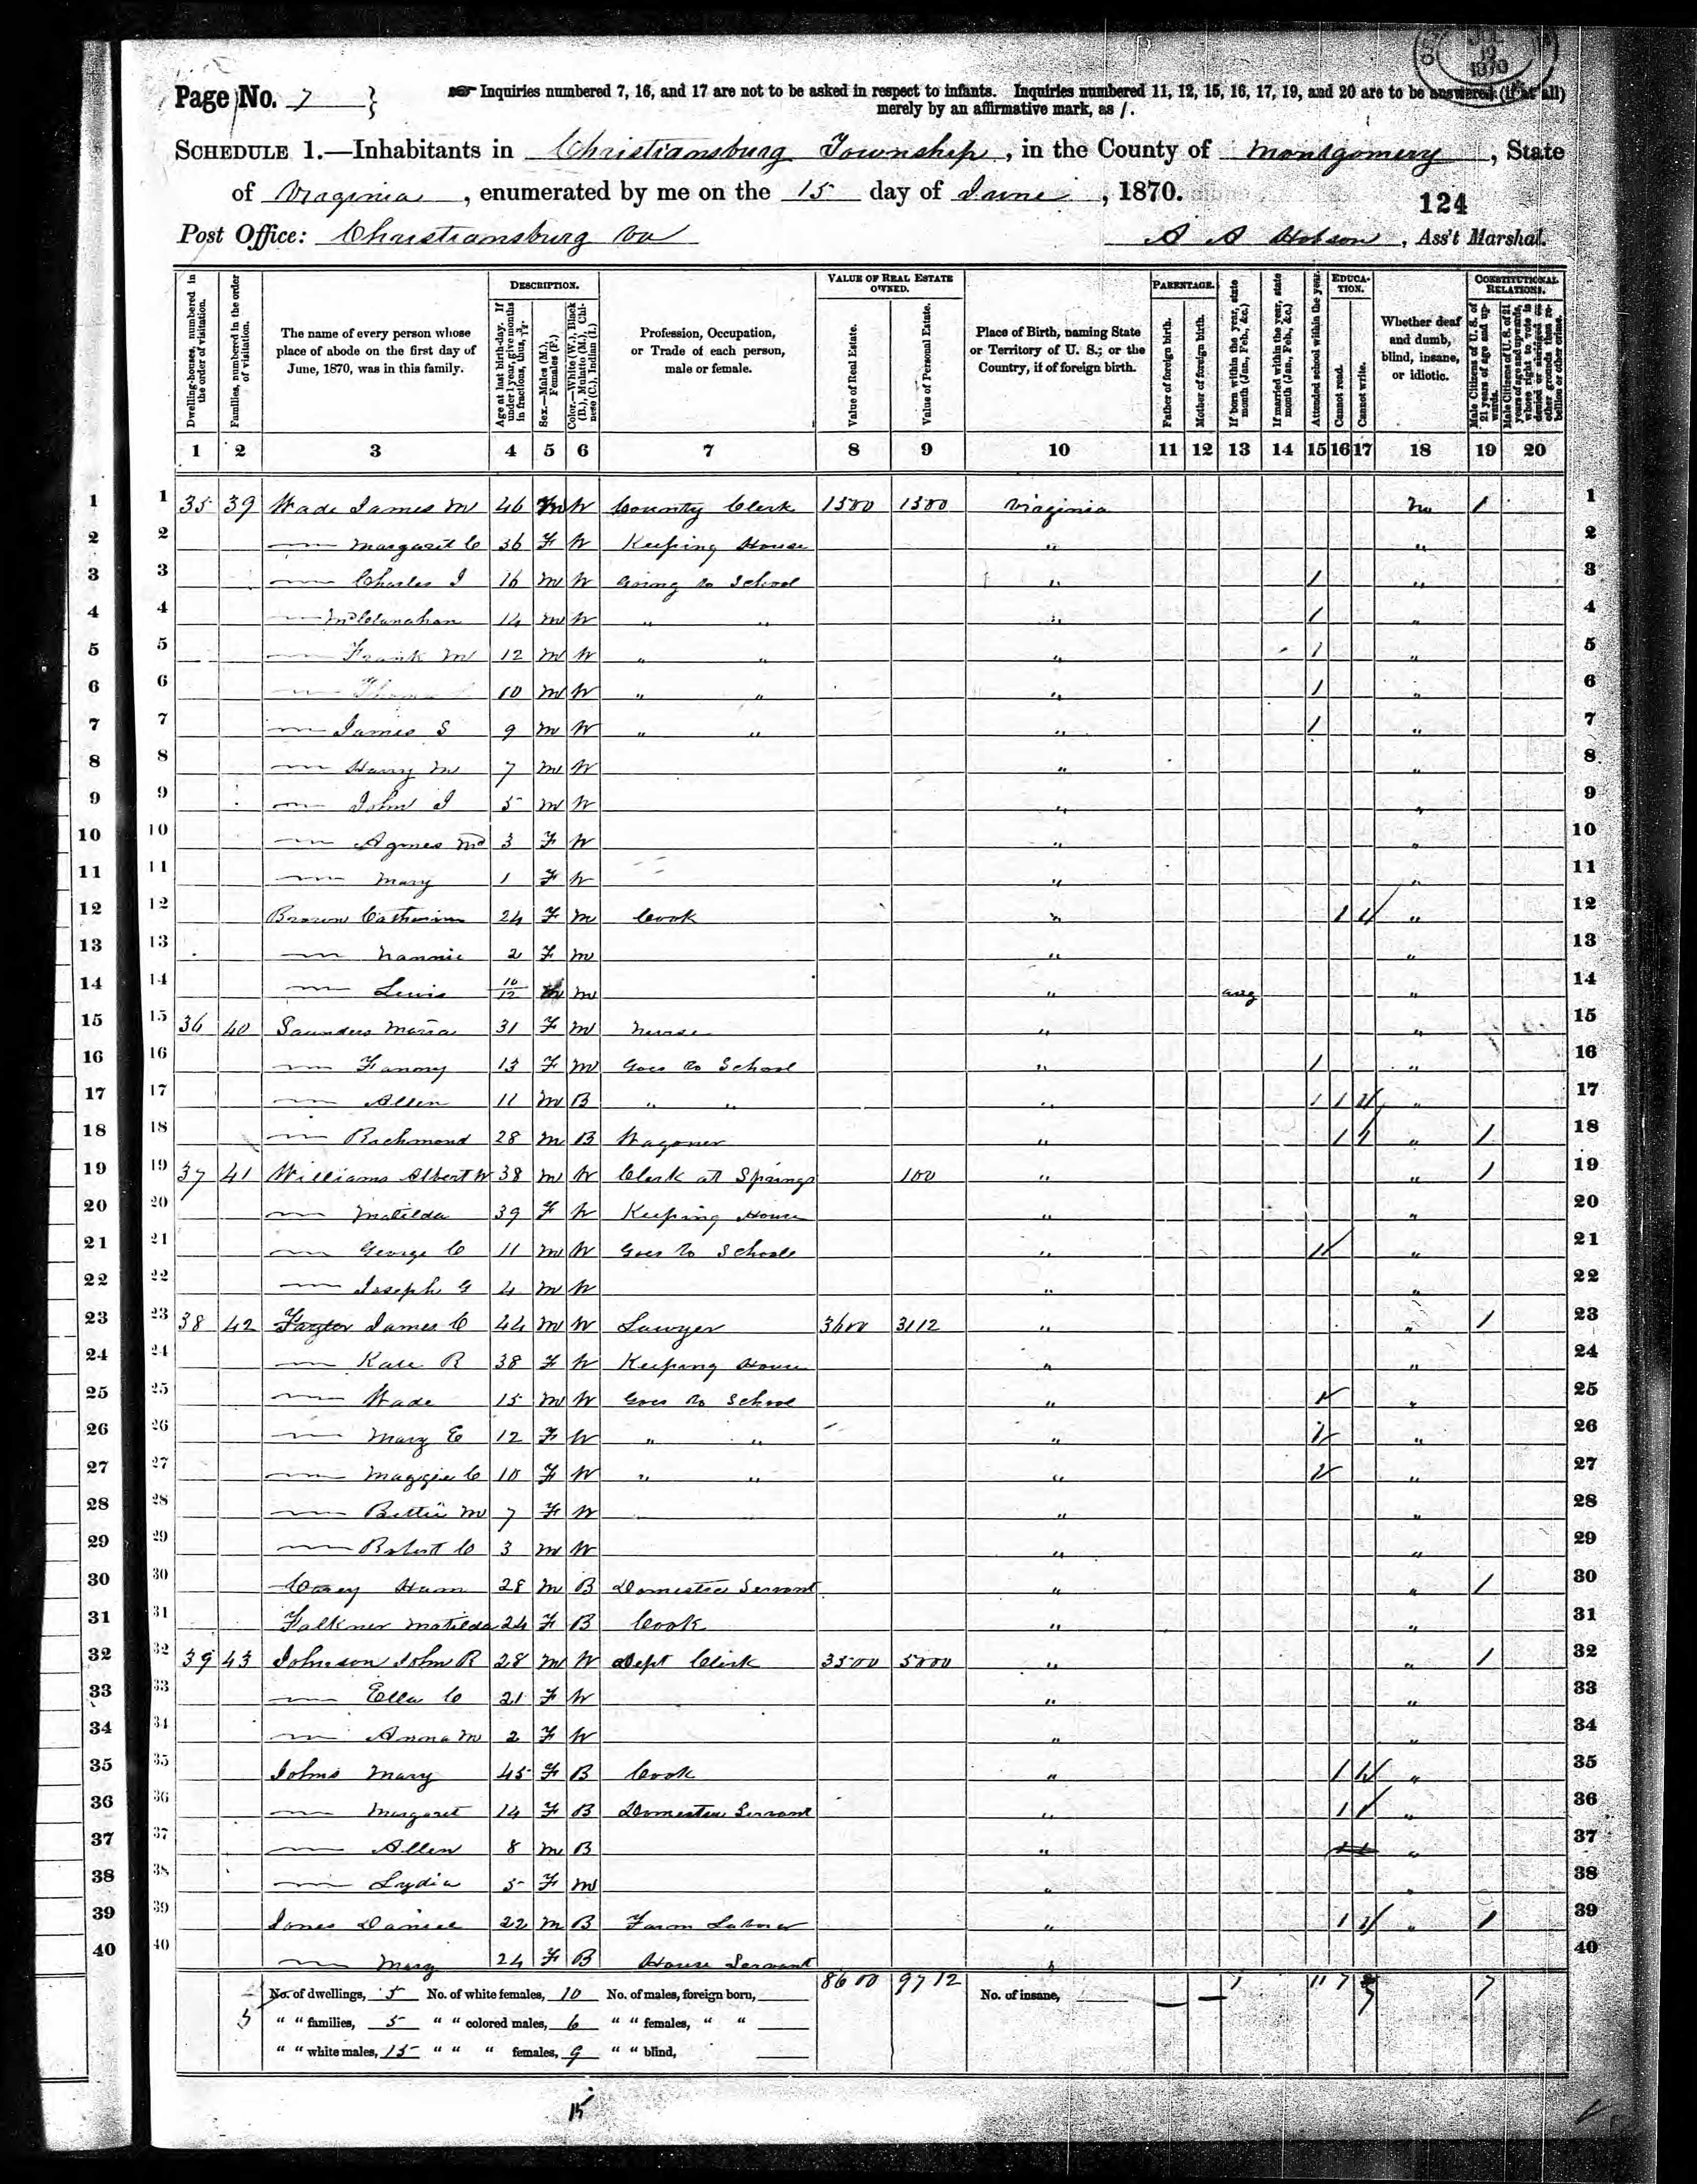 JUL
12
1870
Page No. 7 }
Inquiries numbered 7, 16, and 17 are not to be asked in respect to infants. Inquiries numbered 11, 12, 15, 16, 17, 19, and 20 are to be answered (if at all)
merely by an affirmative mark, as /.
SCHEDULE 1.—Inhabitants in Christiansburg Township, in the County of Montgomery, State
of Virginia, enumerated by me on the 15 day of June, 1870.
124
Post Office: Christiansburg Va
A A Hobson, Ass't Marshal.
Dwelling-houses, numbered in the order of visitation.
Families, numbered in the order of visitation.
The name of every person whose place of abode on the first day of June, 1870, was in this family.
DESCRIPTION.
Age at last birth-day. If under 1 year, give months in fractions, thus, 3/12.
Sex.—Males (M.), Females (F.)
Color.—White (W.), Black (B.), Mulatto (M.), Chinese (C.), Indian (I.)
Profession, Occupation, or Trade of each person, male or female.
VALUE OF REAL ESTATE OWNED.
Value of Real Estate.
Value of Personal Estate.
Place of Birth, naming State or Territory of U. S.; or the Country, if of foreign birth.
PARENTAGE.
Father of foreign birth.
Mother of foreign birth.
If born within the year, state month (Jan., Feb., &c.)
If married within the year, state month (Jan., Feb., &c.)
Attended school within the year.
EDUCATION.
Cannot read.
Cannot write.
Whether deaf and dumb, blind, insane, or idiotic.
CONSTITUTIONAL RELATIONS.
Male Citizens of U. S. of 21 years of age and upwards.
Male Citizens of U. S. of 21 years of age and upwards, whose right to vote is denied or abridged on other grounds than rebellion or other crime.
1 2 3 4 5 6 7 8 9 10 11 12 13 14 15 16 17 18 19 20
1 1 35 39 Wade James M 46 M W County Clerk 1500 1500 Virginia No / 1
2 2 — Margaret C 36 F W Keeping House " " 2
3 3 — Charles I 16 M W Going to School " / " 3
4 4 — McClanahan 14 M W " " " / " 4
5 5 — Frank M 12 M W " " " / " 5
6 6 — 10 M W " " " / " 6
7 7 — James S 9 M W " " " / " 7
8 8 — Harry M 7 M W " " 8
9 9 — John I 5 M W " " 9
10 10 — Agnes Mc 3 F W " " 10
11 11 — Mary 1 F W " " 11
12 12 Brown Catherine 24 F M Cook " / / " 12
13 13 — Nannie 2 F M " " 13
14 14 — Lewis 10/12 M M " Aug " 14
15 15 36 40 Saunders Maria 31 F M Nurse " " 15
16 16 — Fanny 13 F M Goes to School " / " 16
17 17 — Allen 11 M B " " " / / / " 17
18 18 — Richmond 28 M B Wagoner " / / " / 18
19 19 37 41 Williams Albert W 38 M W Clerk at Springs 100 " " / 19
20 20 — Matilda 39 F W Keeping House " " 20
21 21 — George C 11 M W Goes to School " / " 21
22 22 — Joseph G 4 M W " " 22
23 23 38 42 Taylor James C 44 M W Lawyer 3600 3112 " " / 23
24 24 — Kate R 38 F W Keeping House " " 24
25 25 — Wade 15 M W Goes to School " / " 25
26 26 — Mary E 12 F W " " " / " 26
27 27 — Maggie C 10 F W " " " / " 27
28 28 — Bettie M 7 F W " " 28
29 29 — Robert C 3 M W " " 29
30 30 28 M B Domestic Servant " " / 30
31 31 Falkner Matilda 24 F B Cook " " 31
32 32 39 43 Johnson John R 28 M W Dept Clerk 3500 5000 " " / 32
33 33 — Ella C 21 F W " " 33
34 34 — Anna M 2 F W " " 34
35 35 Johns Mary 45 F B Cook " / / " 35
36 36 — Margaret 14 F B Domestic Servant " / / " 36
37 37 — Allen 8 M B " " 37
38 38 — Lydia 5 F M " " 38
39 39 Jones Daniel 22 M B Farm Laborer " / / " / 39
40 40 — Mary 24 F B House Servant 40
5 No. of dwellings, 5 No. of white females, 10 No. of males, foreign born, 8600 9712 No. of insane, — — 1 11 7 7
" " families, 5 " " colored males, 6 " " females, " "
" " white males, 15 " " " females, 9 " " blind,
15